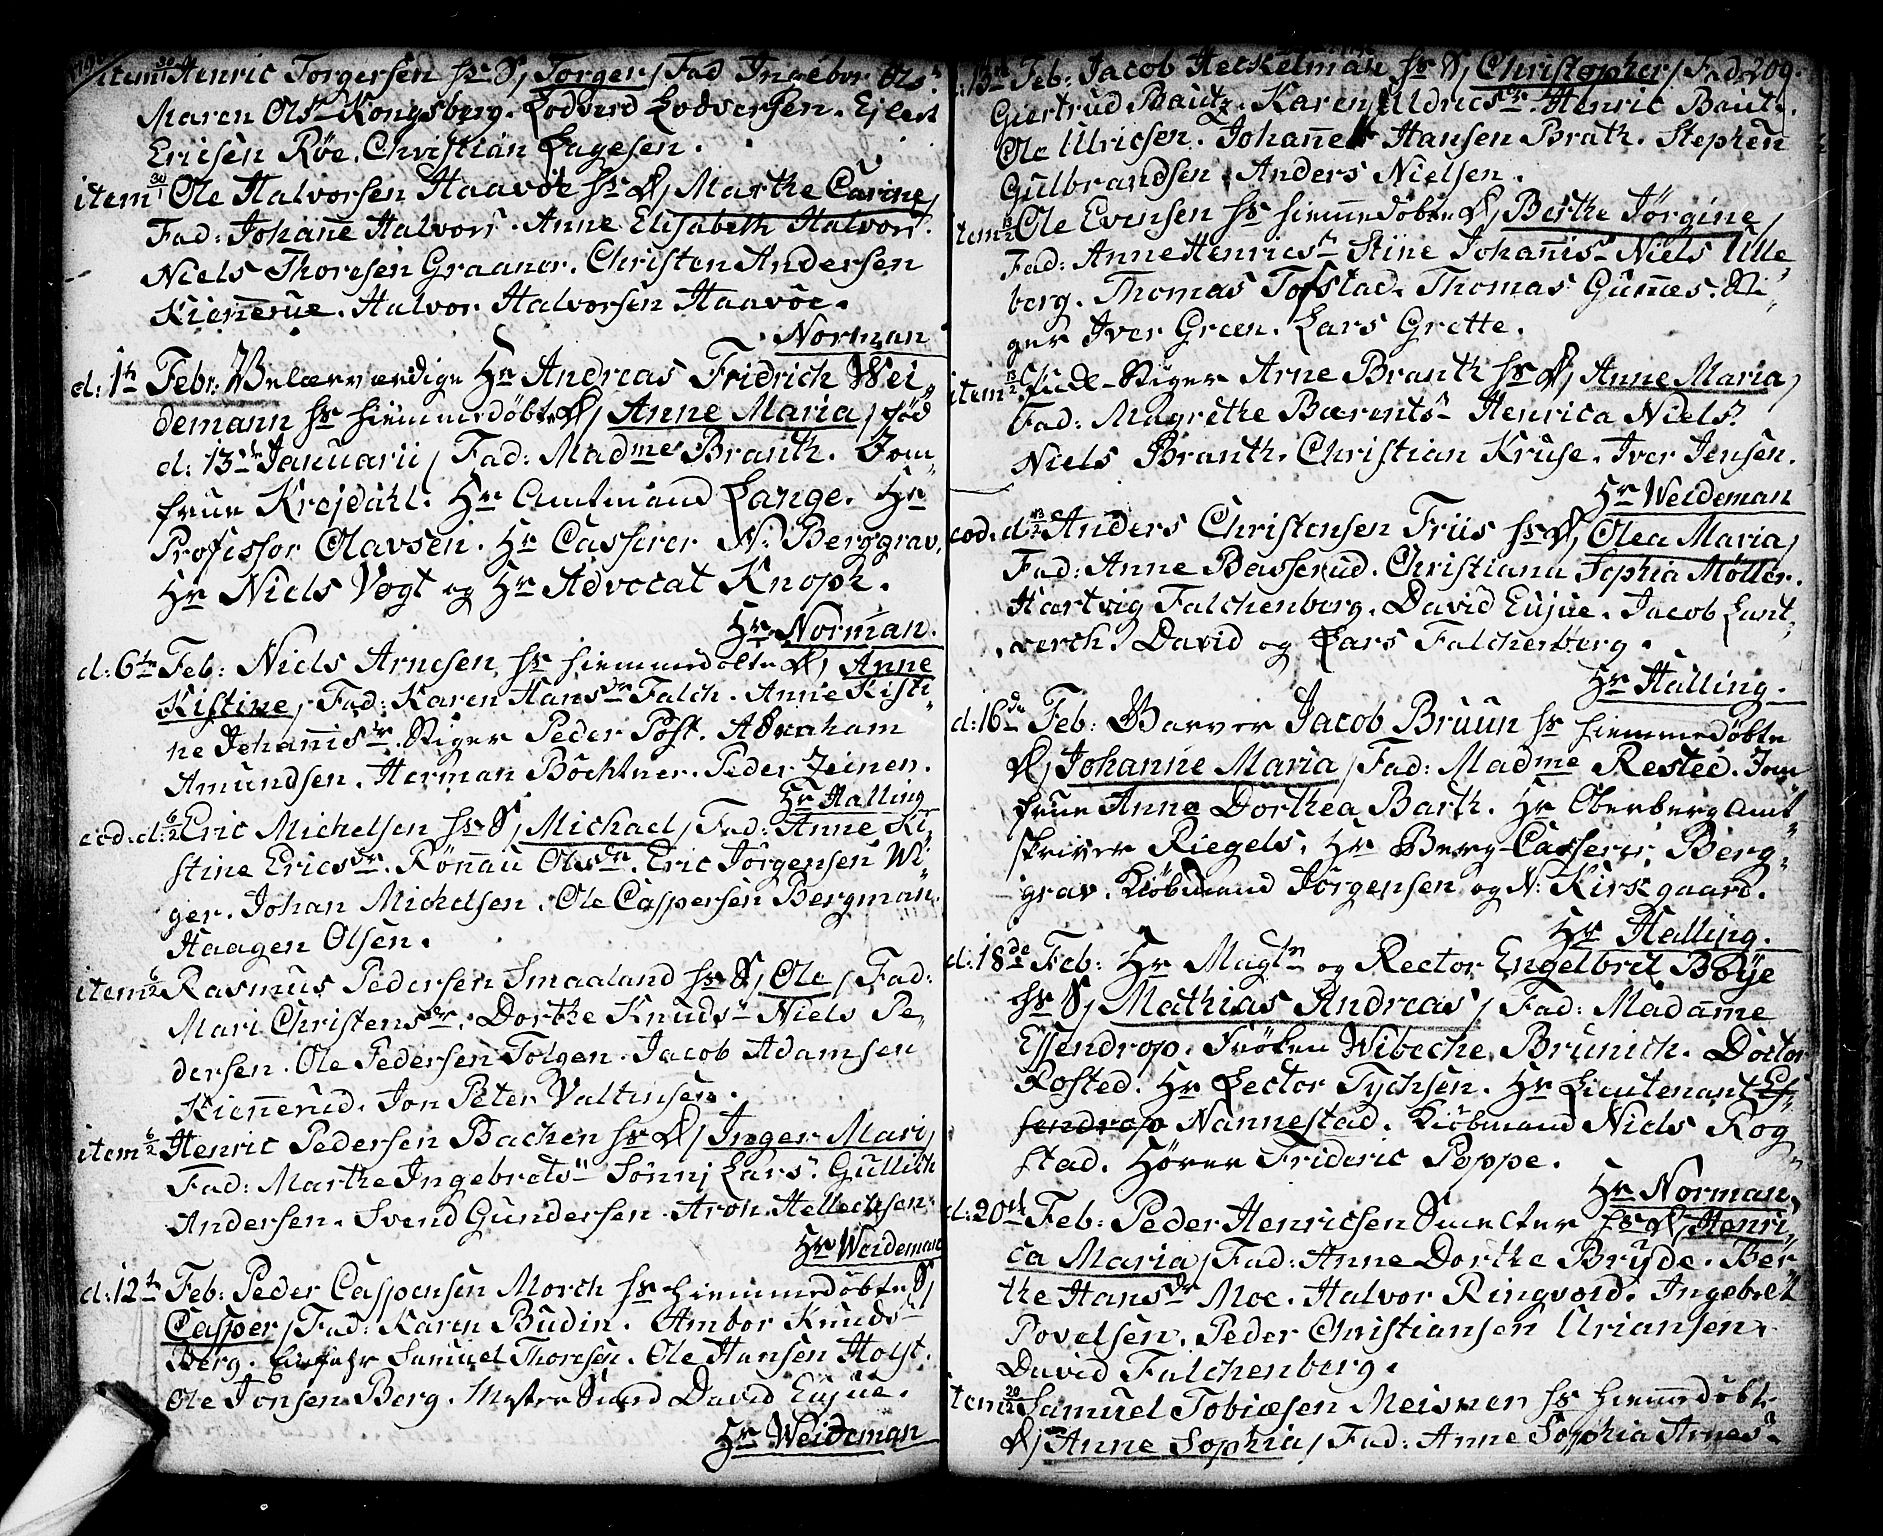 item 30/1 Henric Torgersen hs S, Torger / Fad Ingebor Ols:
Maren Ols Kongsberg. Lodverd Lodversen. Ejlert
Ericsen Røe. Christian Lagesen.
item 30/1 Ole Halvorsen Haavöe hs D, Marthe Carine /
Fad: Johane Halvors. Anne Elisabeth Halvors.
Niels Thoresen Graaner. Christen Andersen
Kiennerue. Halvor Halvorsen Haavöe.
Norman
d: 1te Febr: Velærværdige Hr Andreas Fridrich Wei,
demann hs hiemmedöbte D, Anne Maria / föd
d: 13de Januarii / Fad: Madme Branth. Jom,
frue Krejdahl. Hr Amtmand Lange. Hr
Professor Olavsen. Hr Casserer N: Berggrav,
Hr Niels Vogt og Hr Advocat Knoph.
Hr Norman.
d: 6te Feb: Niels Arnesen hs hiemmedöbte D, Anne
Kistine / Fad: Karen Hansdr Falch. Anne Kisti,
ne Johannisdr. Stiger Peder Post. Abraham
Amundsen. Herman Böchtner. Peder Jeinen.
Hr Halling
eod. d: 6/2 Eric Michelsen hs S, Michael / Fad: Anne Ki,
stine Ericsdr. Rönnau Olsdr. Eric Jörgensen Wi,
ger. Johan Michelsen. Ole Caspersen Bergman.
Haagen Olsen.
item 6/2 Rasmus Pedersen Smaaland hs S, Ole / Fad:
Mari Christensdr. Dorthe Knuds Niels Pe,
dersen. Ole Pedersen Tolgen. Jacob Adamsen
Kiennerud. Jon Peter Valtinsen.
item 6/2 Henric Pedersen Bachen hs D, Inger Mari /
Fad: Marthe Ingebrets Sönnj Lars. Gullich
Andersen. Svend Gundersen. Aron Hellechsen.
Hr Weideman
d: 12te Feb: Peder Caspersen Morch hs hiemmedöbte S,
Casper / Fad: Karen Budin. Ambor Knuds
Berg. Samuel Thoresen. Ole Hansen Holst.
Ole Jonsen Berg. David Eujue.
Hr Weideman
209.
13de Feb: Jacob Heckelman hs S, Christopher / Fad:
Giertrud Bautz. Karen Uldrics. Henric Bautz.
Ole Ulricsen. Johannes Hansen Brath. Stephen
Gulbrandsen. Anders Nielsen.
item 13/2 Ole Evensen hs hiemmedöbte D, Berthe Jörgine /
Fad: Anne Henrics Stine Johannis Niels Ulle,
berg. Thomas Tofstad. Thomas Gunnes. Sti,
ger Iver Green. Lars Grette.
item 13/2 Stiger Arne Branth hs D, Anne Maria /
Fad: Magrethe Bærents Henrica Niels
Niels Branth. Christian Kruse. Iver Jensen.
Hr Weideman
eod. d: 13/2 Anders Christensen Friis hs D, Olea Maria /
Fad: Anne Basserud. Christiana Sophia Möller.
Hartvig Falchenberg. David Eujue. Jacob Lant,
verch. David og Lars Falchenberg.
Hr Halling.
d: 16de Feb: Garver Jacob Bruun hs hiemmedöbte
D, Johanne Maria / Fad: Madme Rested. Jom
frue Anne Dorthea Barth. Hr Oberberg Amt
skriver Riegels. Hr Berg-Casserer Berg,
grav. Kiöbmand Jörgensen og N: Kirkgaard.
Hr Halling.
d: 18de Feb: Hr Magtr og Rector Engelbret Böÿe
hs S, Mathias Andreas / Fad: Madame
Essendrop. Fröken Wibeche Brunich. Doctor
Rosted. Hr Lector Tychsen. Hr Lieutenant Es,
sendrop Nannestad. Kiöbmand Niels Rog
stad. Hörer Frideric Poppe.
Hr Norman
d: 20de Feb: Peder Henricsen Smelter hs D, Henri,
ca Maria / Fad: Anne Dorthe Brÿde. Ber
the Hansdr Moe. Halvor Ringvold. Ingebret
Povelsen. Peder Christiansen Uriansen.
David Falchenberg.
item 20/2 Samuel Tobiæsen Meisner hs hiemmedöbte
D, Anne Sophia / Fad: Anne Sophia Arnes